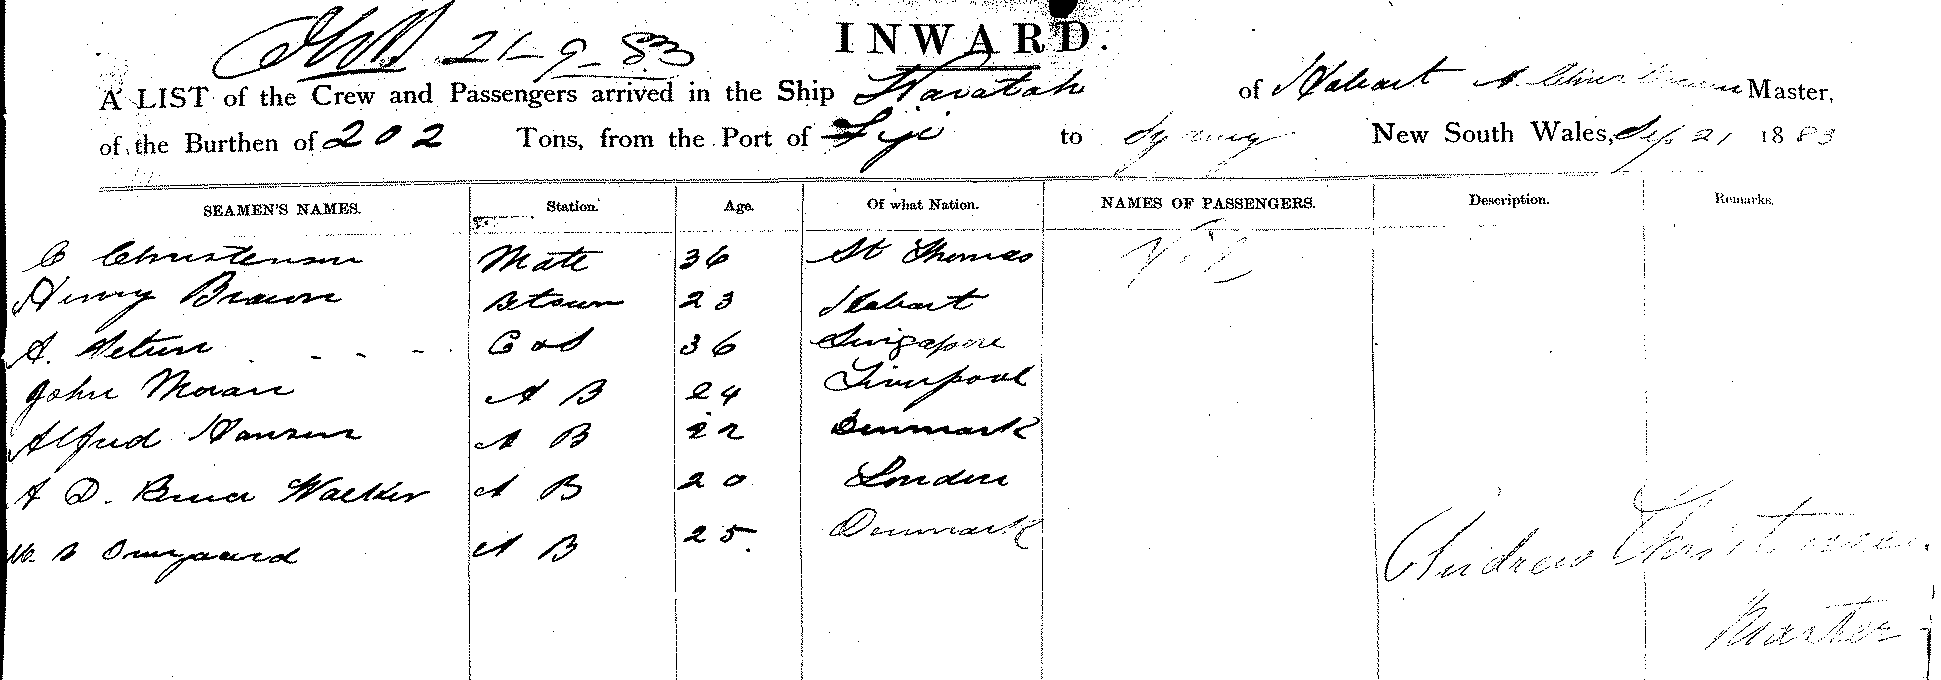 21-9-83
INWARD.
A LIST of the Crew and Passengers arrived in the Ship of Hobart A Master,
of the Burthen of 202 Tons, from the Port of Fiji to Sydney New South Wales, Sep 21 1883
SEAMEN'S NAMES. Station. Age. Of what Nation. NAMES OF PASSENGERS. Description. Remarks.
C Christensen Mate 36 St Thomas Nil
Henry Brown 23 Hobart
A. 36 Singapore
John Moran A B 24 Liverpool
Alfred Hansen A B 22 Denmark
A D. Walker A B 20 London
A B 25. Denmark
Andrew Christensen
Master